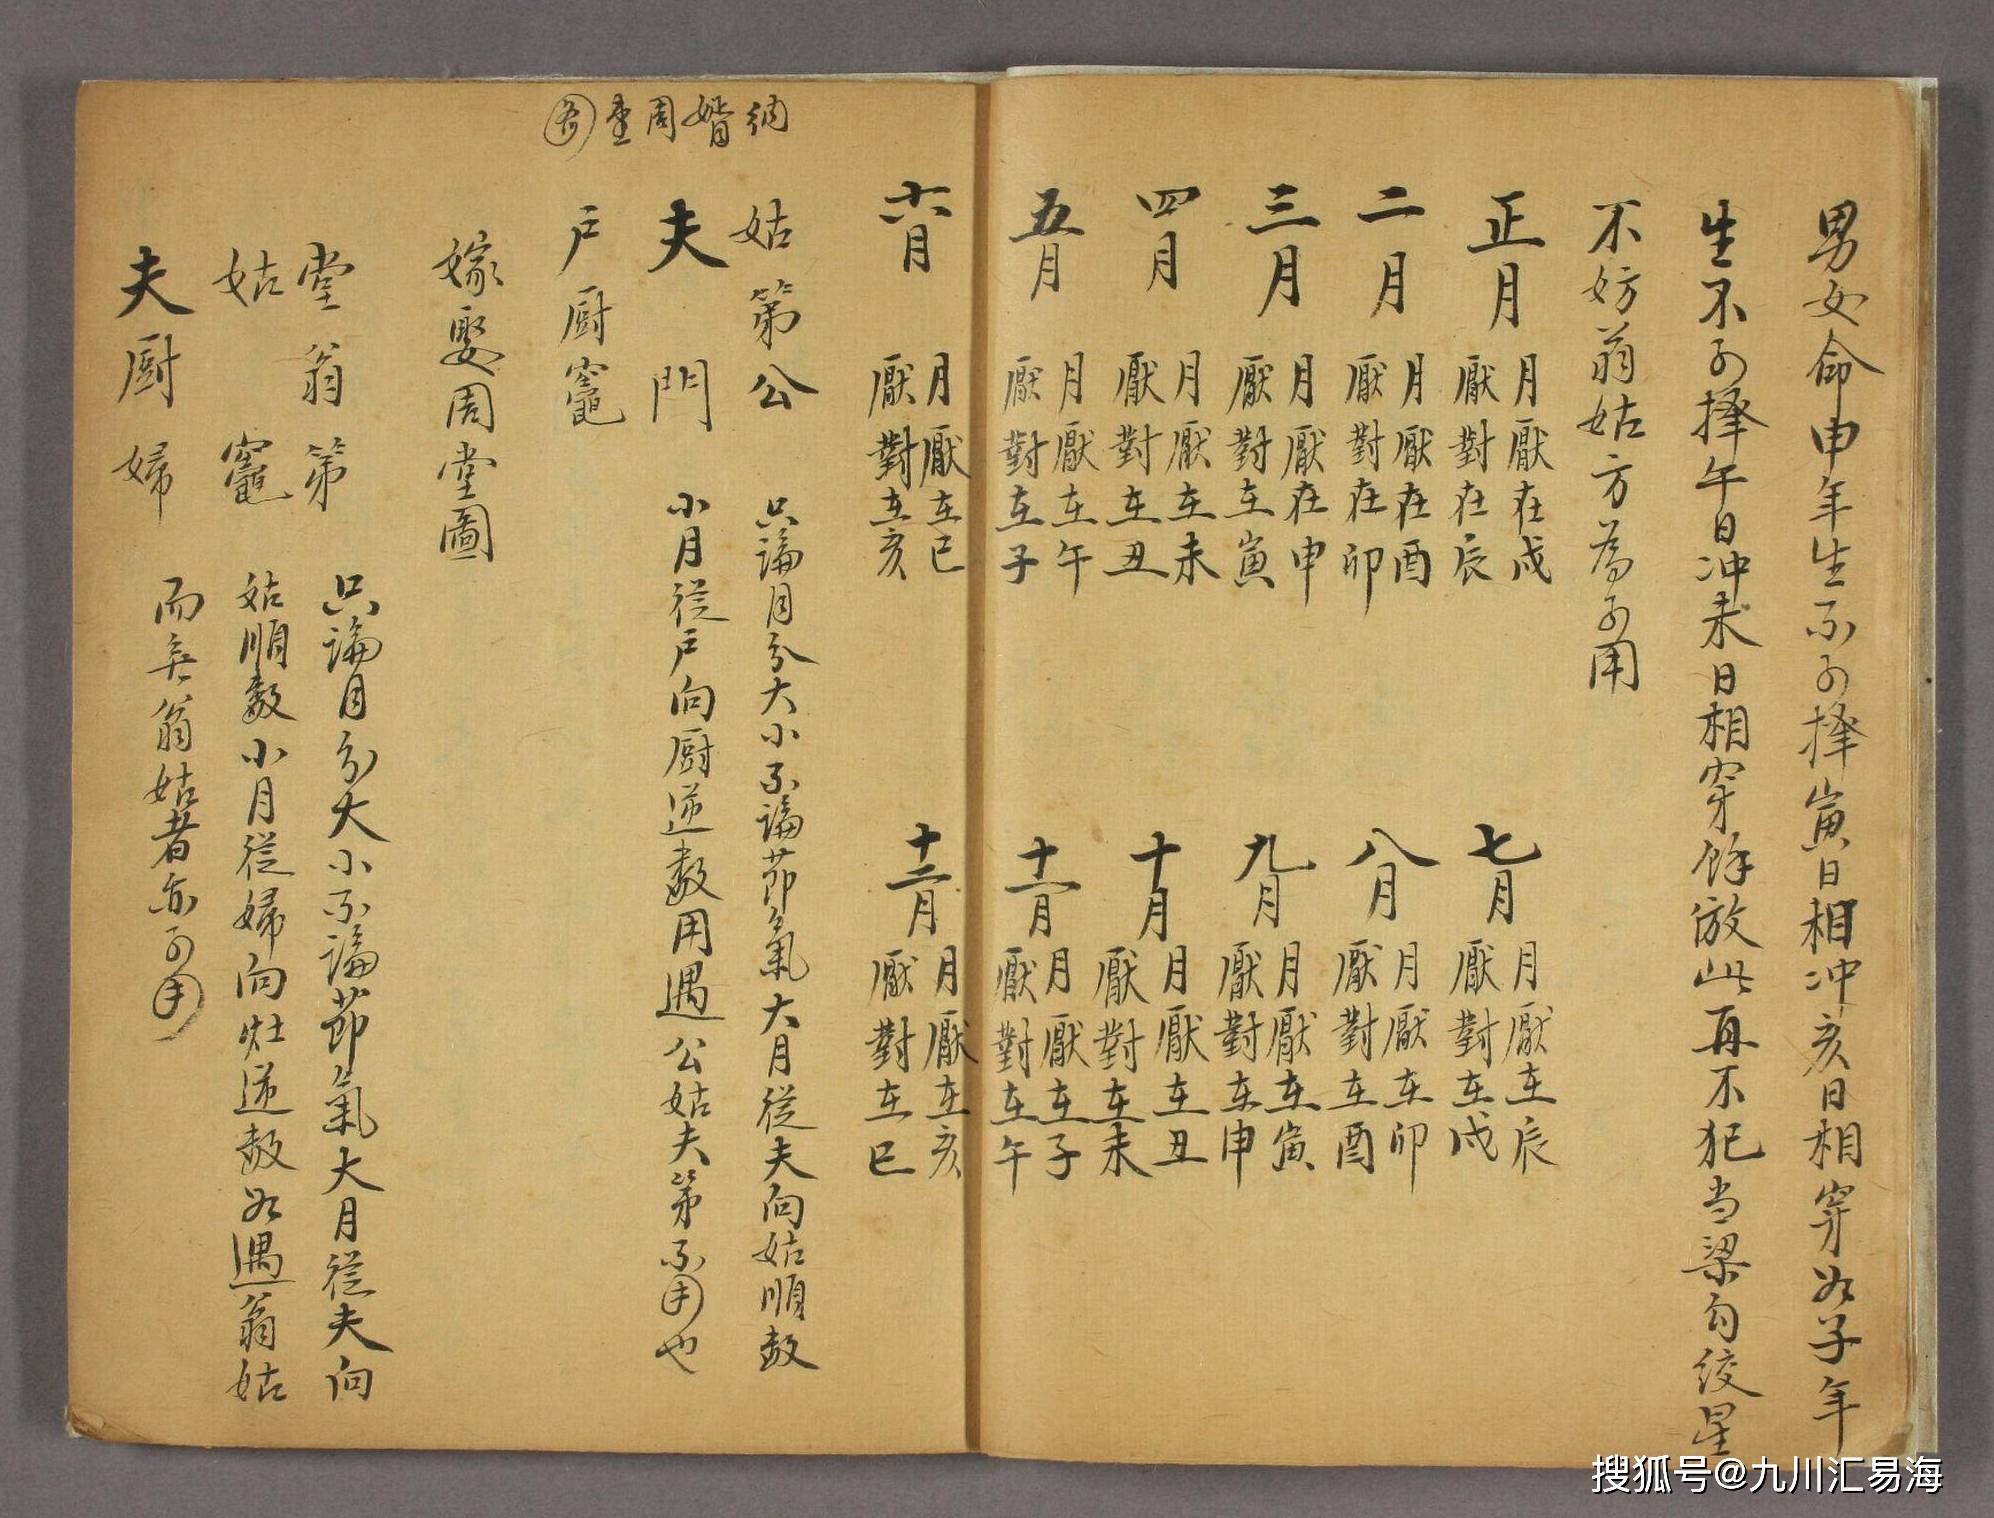 男女命申年生不可擇寅日相冲亥日相穿如子年
生不可擇午日冲未日相穿餘倣此再不犯当梁勾絞星
不妨翁姑方為可用
正月 月厭在戌 厭對在辰
七月 月厭在辰 厭對在戌
二月 月厭在酉 厭對在卯
八月 月厭在卯 厭對在酉
三月 月厭在申 厭對在寅
九月 月厭在寅 厭對在申
四月 月厭在未 厭對在丑
十月 月厭在丑 厭對在未
五月 月厭在午 厭對在子
十一月 月厭在子 厭對在午
六月 月厭在巳 厭對在亥
十二月 月厭在亥 厭對在巳
納婿周堂
姑第公 只論月分大小不論節氣大月從夫向姑順數
夫門 小月從戶向厨逆數用遇公姑夫第不用也
戶厨竈
嫁娶周堂圖
堂翁第 只論月分大小不論節氣大月從夫向
姑竈 姑順數小月從婦向灶逆數如遇翁姑
夫厨婦 而無翁姑者亦可用
搜狐号@九川汇易海